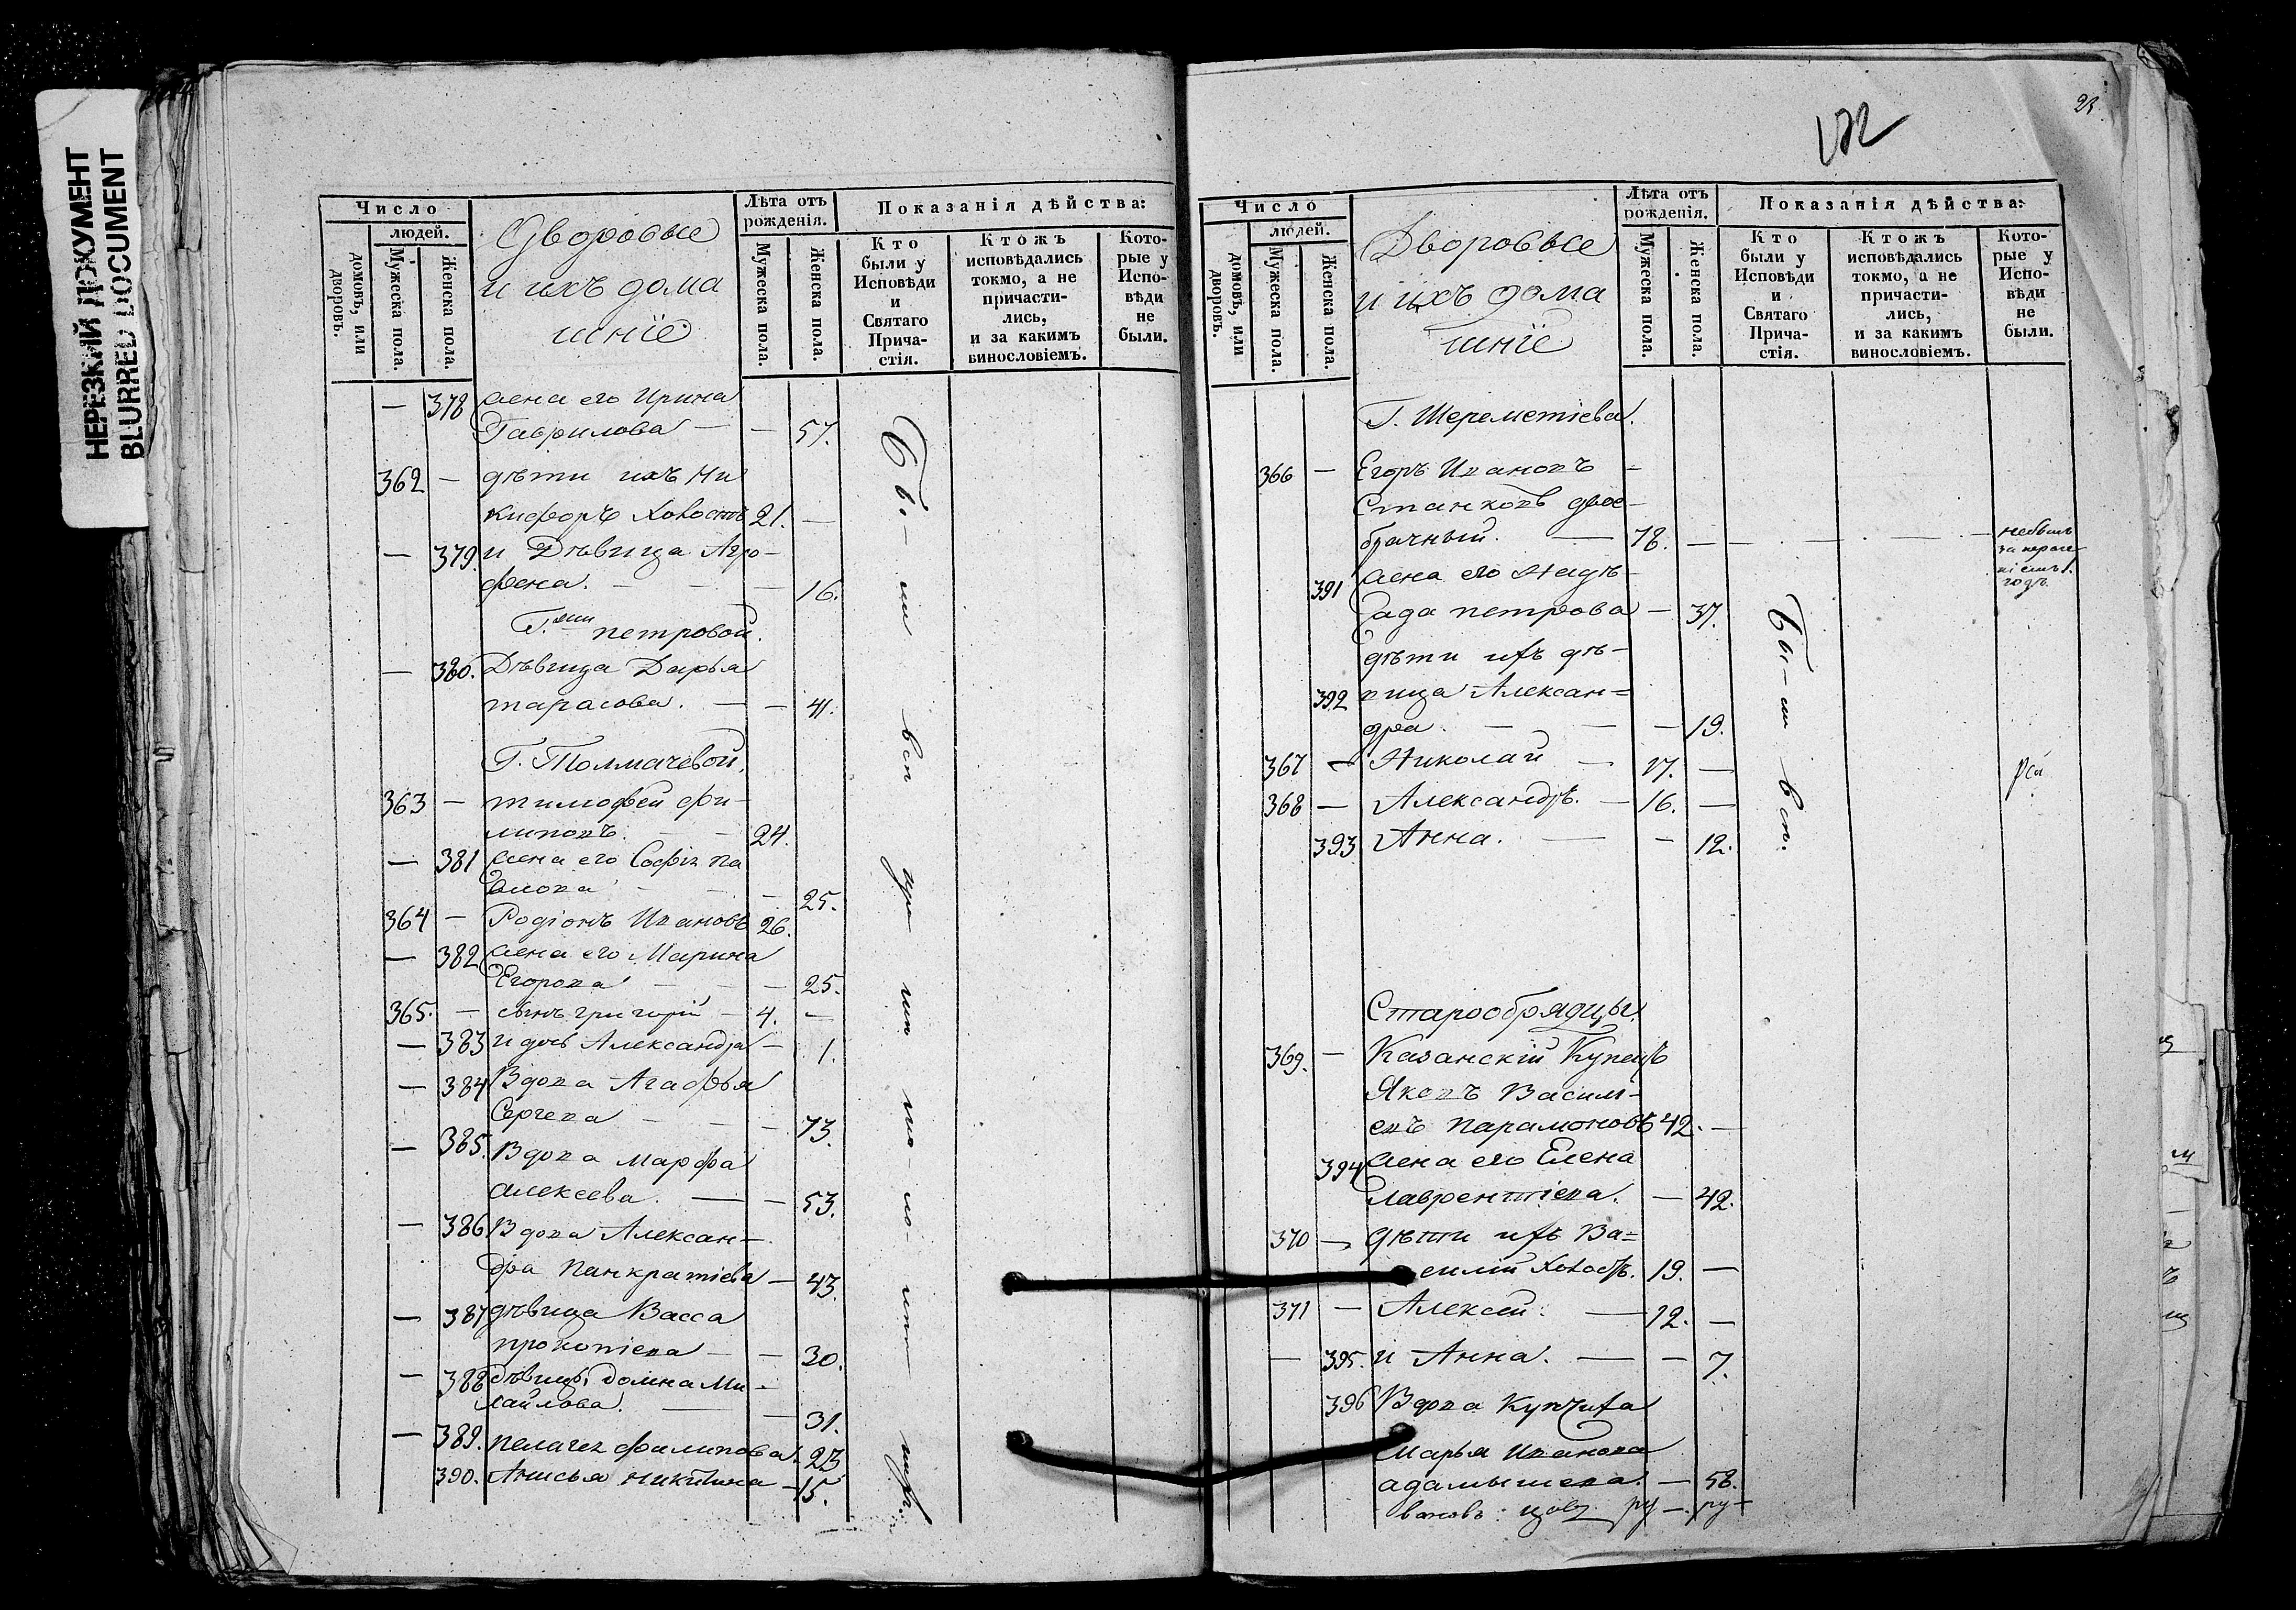 НЕРЕЗКИЙ ДОКУМЕНТ
BLURRED DOCUMENT
Число
людей.
домовъ, или дворовъ.
Мужеска пола.
Женска пола.
Дворовые
и ихъ дома
шніе
Лѣта отъ рожденія.
Мужеска пола.
Женска пола.
Показанія дѣйства:
Кто были у Исповѣди и Святаго Прича-стія.
Ктожъ исповѣдались токмо, а не причасти-лись, и за какимъ винословіемъ.
Кото-рые у Испо-вѣди не были.
— 378 жена его Ирина
Гаврилова — — 57.
362 — дѣти ихъ Ни
кифоръ холостъ 21. —
— 379. и Дѣвица Агро-
фена. — — 16.
Г.жи петровой.
— 380. Дѣвица Дарья
тарасова. — — 41.
Г. Толмачевой.
363 — тимофей фи-
липовъ. — 24.
— 381 жена его Софія па
влова — — 25.
364 — Родіонъ Ивановъ 26.
— 382 жена его Марина
Егорова — — 25.
365. — сынъ григорій — 4. —
— 383 и дочь Александра — 1.
— 384 Вдова Агафья
Сергева — — 73.
— 385. Вдова марфа
алексева. — — 53.
— 386 Вдова Алексан-
дра Панкратіева — 43.
— 387 дѣвица Васса
прокопіева — — 30.
— 388 дѣвица домна Ми-
хайлова. — — 31.
— 389. пелагея филипова. 23
390. Анисья никитина — 15.
Бы-ли
всп
23
Число
людей.
домовъ, или дворовъ.
Мужеска пола.
Женска пола.
Дворовые
и ихъ дома
шніе
Лѣта отъ рожденія.
Мужеска пола.
Женска пола.
Показанія дѣйства:
Кто были у Исповѣди и Святаго Прича-стія.
Ктожъ исповѣдались токмо, а не причасти-лись, и за какимъ винословіемъ.
Кото-рые у Испо-вѣди не были.
Г. Шереметіева.
366 — Егоръ Ивановъ —
Станковъ двое-
брачный. — 78. — — — небылъ
391 жена его Надѣ-
жда петрова — 37.
дѣти ихъ дѣ-
392 вица Алексан=
дра. — — — 19.
367 — Николай — 17. —
368 — Александръ. — 16. —
393 Анна. — — 12.
Бы-ли
всп.
Старообрядцы.
369. — Казанскій Купецъ
Яковъ Васил-
евъ парамоновъ 42. —
394 жена его Елена
лаврентіева. — 42.
370 — Дѣти ихъ Ва=
силій холостъ. 19. —
371 — Алексей. — 12. —
— 395. и Анна. — — 7.
396 Вдова купчиха
Марья Иванова
адамышева. — 58.